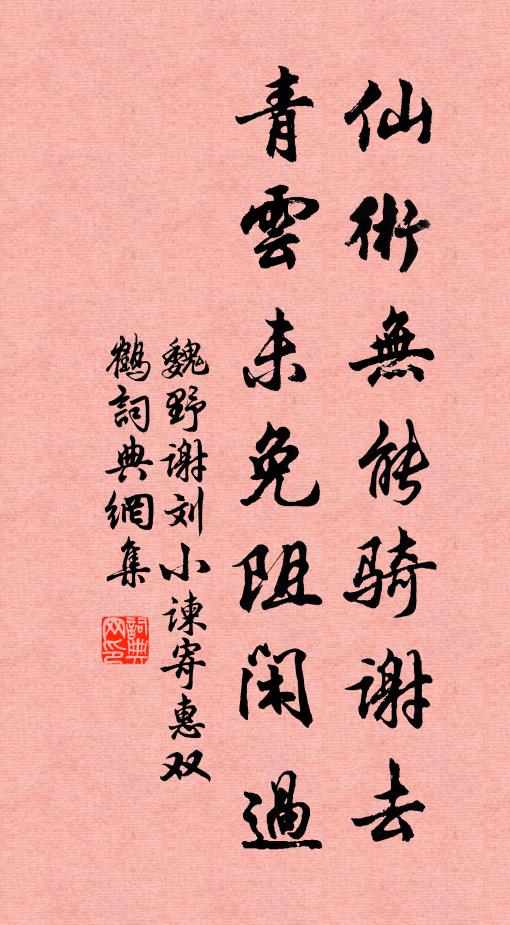 仙術無能骑谢去
青雲未免阻闲過
魏野谢刘小谏寄惠双
鹤詞典網集
詞典网印